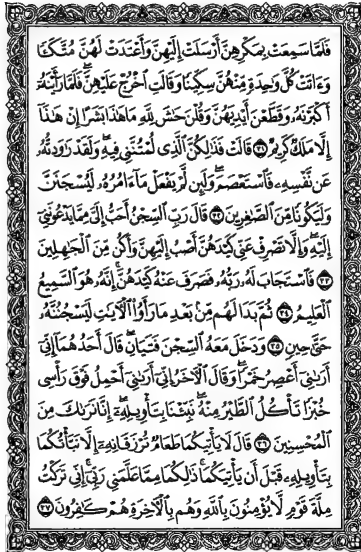 فَلَمَّا سَمِعَتْ بِمَكْرِهِنَّ أَرْسَلَتْ إِلَيْهِنَّ وَأَعْتَدَتْ لَهُنَّ مُتَّكَـًٔا
وَءَاتَتْ كُلَّ وَٰحِدَةٍ مِّنْهُنَّ سِكِّينًا وَقَالَتِ ٱخْرُجْ عَلَيْهِنَّ ۖ فَلَمَّا رَأَيْنَهُۥٓ
أَكْبَرْنَهُۥ وَقَطَّعْنَ أَيْدِيَهُنَّ وَقُلْنَ حَٰشَ لِلَّهِ مَا هَٰذَا بَشَرًا إِنْ هَٰذَآ
إِلَّا مَلَكٌ كَرِيمٌ ٣١ قَالَتْ فَذَٰلِكُنَّ ٱلَّذِى لُمْتُنَّنِى فِيهِ ۖ وَلَقَدْ رَٰوَدتُّهُۥ
عَن نَّفْسِهِۦ فَٱسْتَعْصَمَ ۖ وَلَئِن لَّمْ يَفْعَلْ مَآ ءَامُرُهُۥ لَيُسْجَنَنَّ
وَلَيَكُونًا مِّنَ ٱلصَّٰغِرِينَ ٣٢ قَالَ رَبِّ ٱلسِّجْنُ أَحَبُّ إِلَىَّ مِمَّا يَدْعُونَنِىٓ
إِلَيْهِ ۖ وَإِلَّا تَصْرِفْ عَنِّى كَيْدَهُنَّ أَصْبُ إِلَيْهِنَّ وَأَكُن مِّنَ ٱلْجَٰهِلِينَ
٣٣ فَٱسْتَجَابَ لَهُۥ رَبُّهُۥ فَصَرَفَ عَنْهُ كَيْدَهُنَّ ۚ إِنَّهُۥ هُوَ ٱلسَّمِيعُ
ٱلْعَلِيمُ ٣٤ ثُمَّ بَدَا لَهُم مِّنۢ بَعْدِ مَا رَأَوُا۟ ٱلْءَايَٰتِ لَيَسْجُنُنَّهُۥ
حَتَّىٰ حِينٍ ٣٥ وَدَخَلَ مَعَهُ ٱلسِّجْنَ فَتَيَانِ ۖ قَالَ أَحَدُهُمَآ إِنِّىٓ
أَرَىٰنِىٓ أَعْصِرُ خَمْرًا ۖ وَقَالَ ٱلْءَاخَرُ إِنِّىٓ أَرَىٰنِىٓ أَحْمِلُ فَوْقَ رَأْسِى
خُبْزًا تَأْكُلُ ٱلطَّيْرُ مِنْهُ ۖ نَبِّئْنَا بِتَأْوِيلِهِۦٓ ۖ إِنَّا نَرَىٰكَ مِنَ
ٱلْمُحْسِنِينَ ٣٦ قَالَ لَا يَأْتِيكُمَا طَعَامٌ تُرْزَقَانِهِۦٓ إِلَّا نَبَّأْتُكُمَا
بِتَأْوِيلِهِۦ قَبْلَ أَن يَأْتِيَكُمَا ۚ ذَٰلِكُمَا مِمَّا عَلَّمَنِى رَبِّىٓ ۚ إِنِّى تَرَكْتُ
مِلَّةَ قَوْمٍ لَّا يُؤْمِنُونَ بِٱللَّهِ وَهُم بِٱلْءَاخِرَةِ هُمْ كَٰفِرُونَ ٣٧